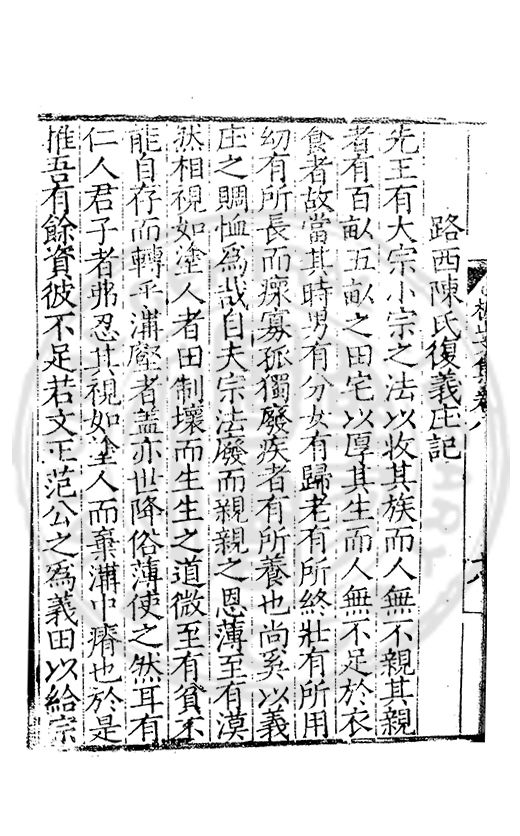 路西陳氏復義庄記
先王有大宗小宗之法以收其族而人無不親其親
者有百畝五畝之田宅以厚其生而人無不足於衣
食者故當其時男有分女有歸老有所終壯有所用
幼有所長而瘝寡孤獨廢疾者有所養也尚奚以義
庄之賙恤爲哉自夫宗法廢而親親之恩薄至有漠
然相視如塗人者田制壞而生生之道微至有貧不
能自存而轉乎溝壑者蓋亦世降俗薄使之然耳有
仁人君子者弗忍其視如塗人而棄溝中瘠也於是
推吾有餘資彼不足若文正范公之爲義田以給宗